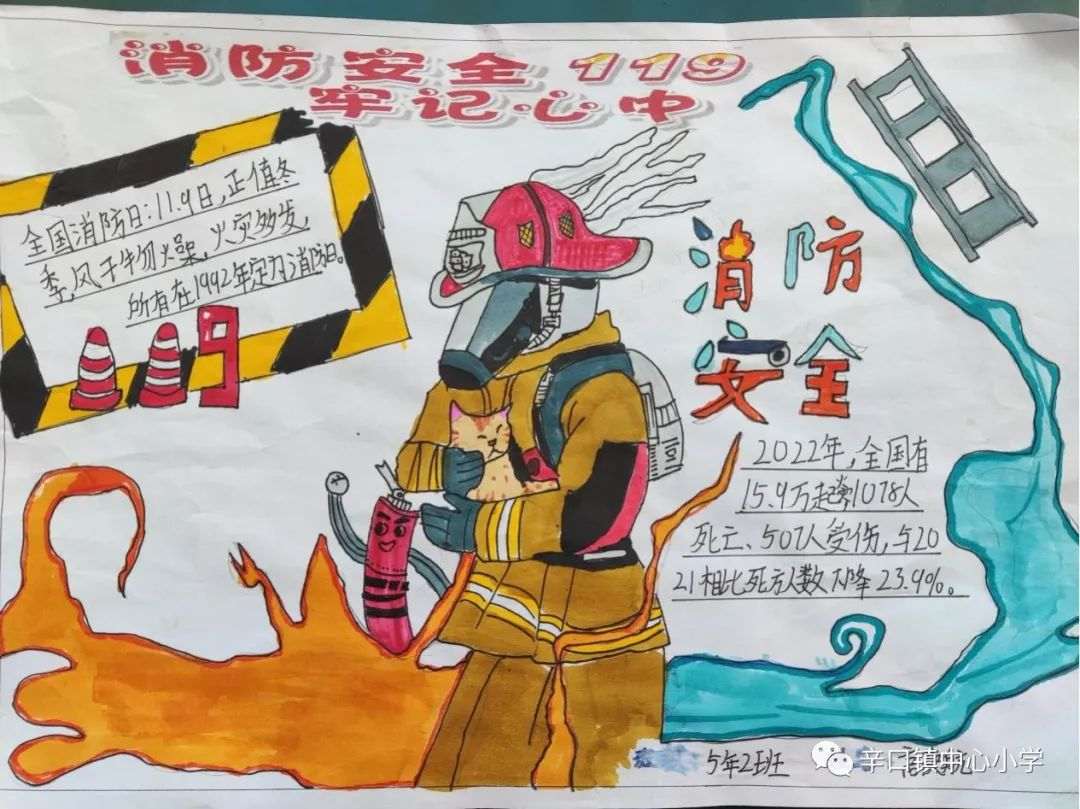 消防安全119
牢记心中
全国消防日:11.9日,正值冬
季,风干物燥,火灾多发,
所有在1992年定为消防日。
119
消防
安全
2022年,全国有
15.9万起 1078人
死亡、507人受伤,与20
21相比死亡人数下降23.9%。
5年2班
辛口镇中心小学